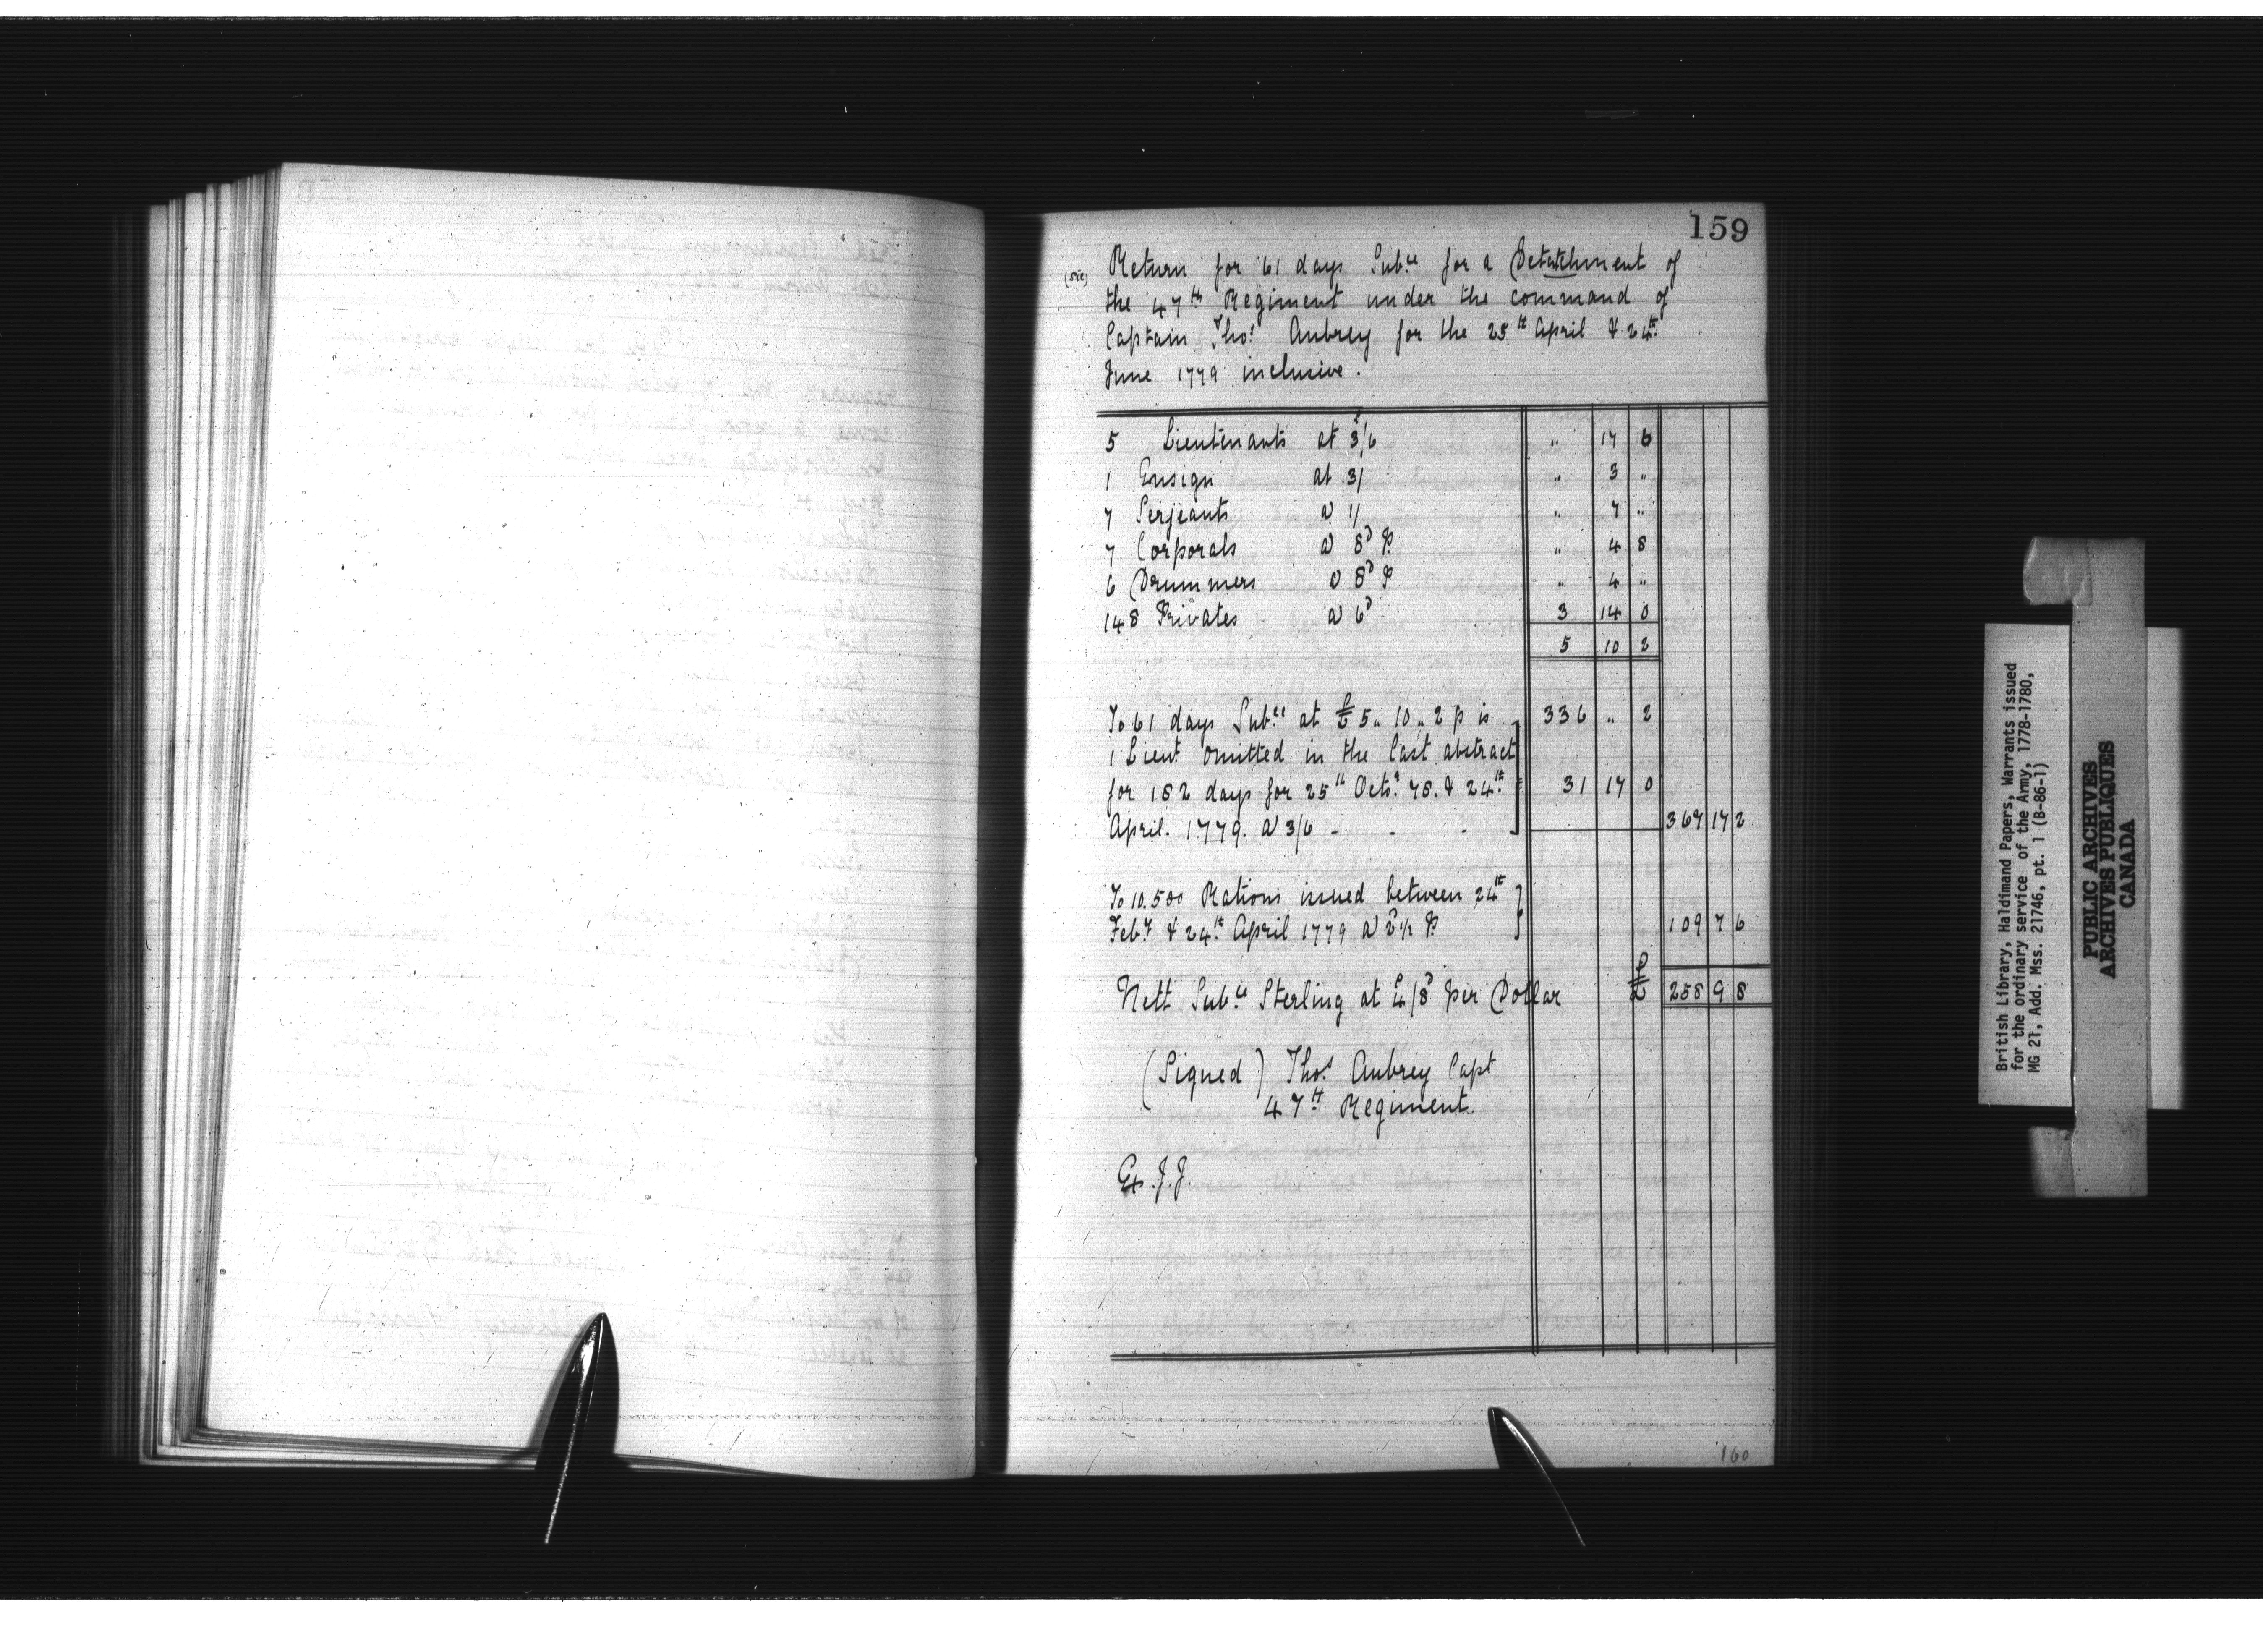 159
(sic) Return for 61 days Sub.ce for a Detatchment of
the 47th Regiment under the command of
Captain Thos. Aubrey for the 25th April & 24th
June 1779 inclusive.
5 Lieutenants at 3/6 " 17 6
1 Ensign at 3/ " 3 "
7 Serjeants @ 1/ " 7 "
7 Corporals @ 8d P. " 4 8
6 Drummers @ 8d P " 4 "
148 Privates @ 6d 3 14 0
5 10 2
To 61 days Sub.ce at £5 " 10 " 2 p is 336 " 2
1 Lieut. omitted in the last abstract
for 182 days for 25th Octr. 78. & 24th 31 17 0
April. 1779. @ 3/6 - - - 367 17 2
To 10.500 Rations issued between 24th
Feby & 24th April 1779 @ 2 1/2 P. 109 7 6
Nett Sub.ce Sterling at 4/8d per Dollar £ 258 9 8
(Signed) Thos. Aubrey Capt
47th Regiment.
Ex. J.J.
160
British Library, Haldimand Papers, Warrants issued
for the ordinary service of the Army, 1778-1780,
MG 21, Add. Mss. 21746, pt. 1 (B-86-1)
PUBLIC ARCHIVES
ARCHIVES PUBLIQUES
CANADA